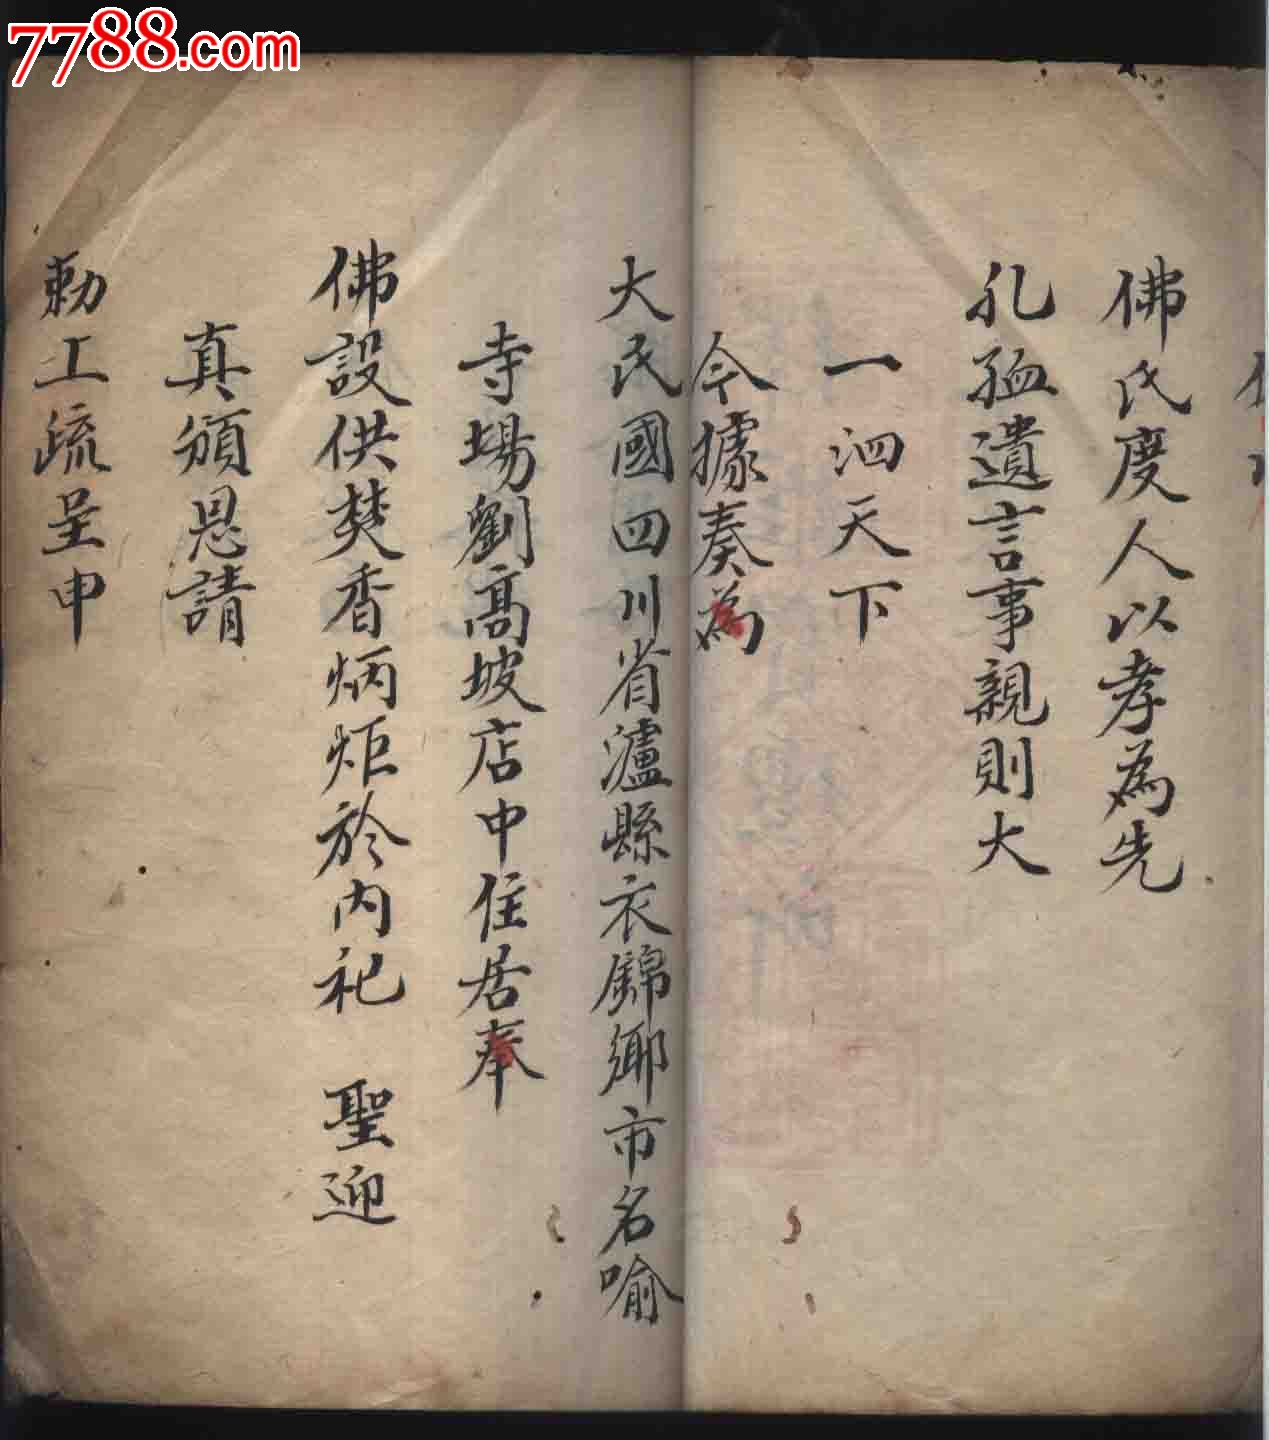 7788.com
佛氏度人以孝為先
孔孟遺言事親則大
一泗天下
今據奏為
大民國四川省瀘縣衣錦鄉市名喻
寺場劉高坡店中住居奉
佛設供焚香炳炬於內祀 聖迎
真頒恩請
勅工疏呈申